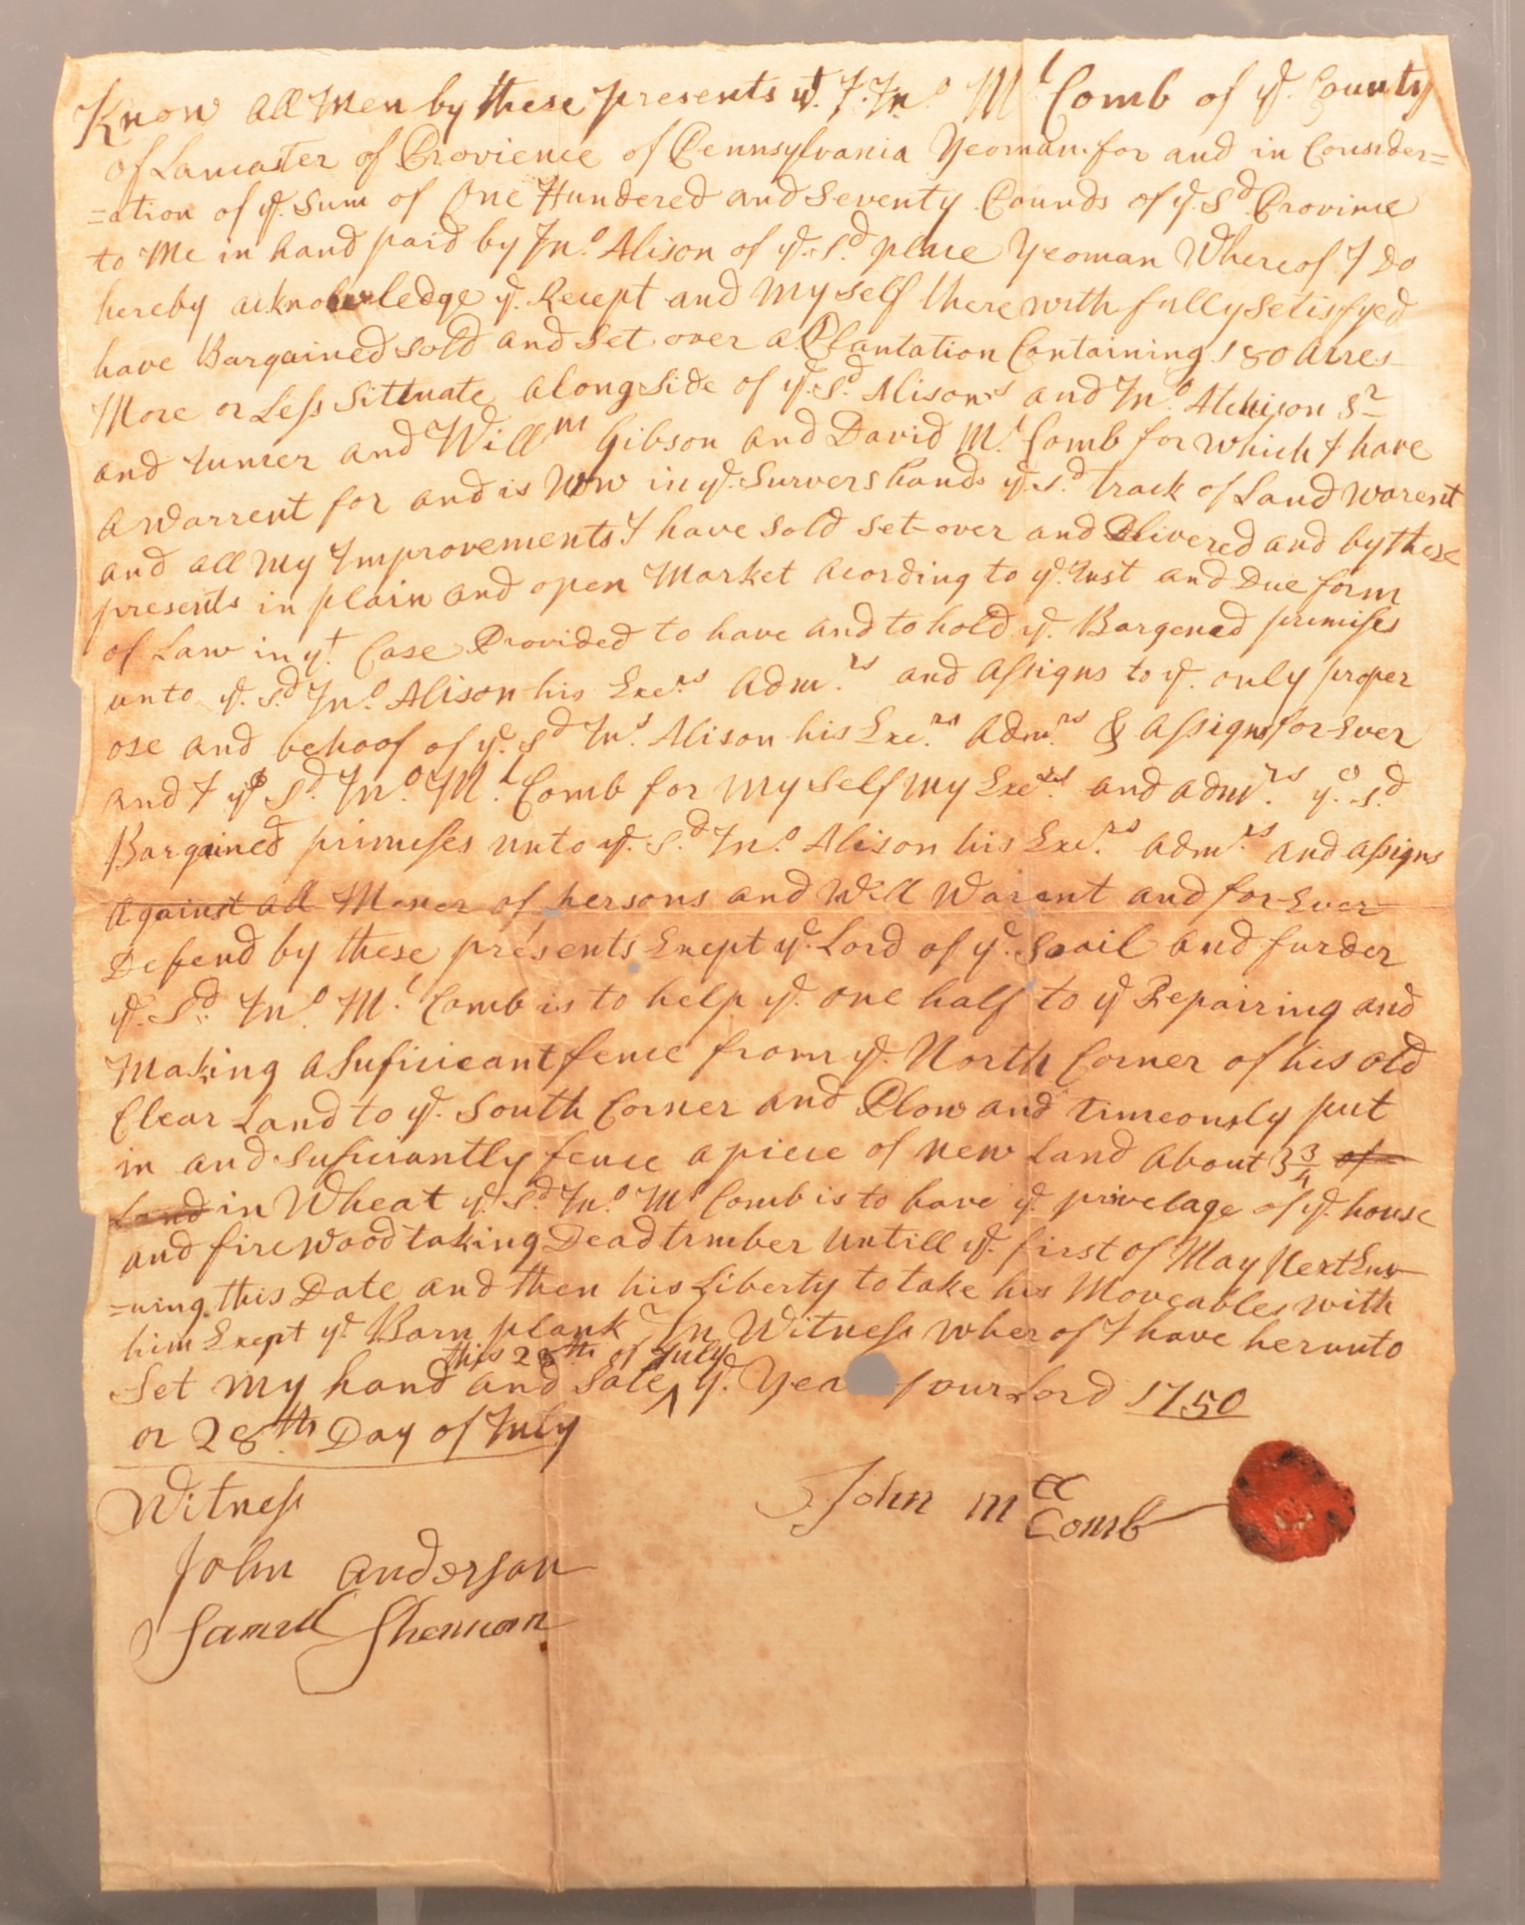 Know all Men by these presents yt. I Jno. Mc Comb of ye. County
of Lancaster of Provience of Pennsylvania Yeoman for and in Consider=
=ation of ye. Sum of One Hundered and Seventy Pounds of ye. Sd. Province
to Me in hand paid by Jno. Alison of ye. Sd. place Yeoman Whereof I Do
hereby acknowledge ye. Recept and My self therewith fully Setisfyed
have Bargained Sold and Set over a Plantation Containing 180 Acres
More or Less Sittuate alongside of ye. Sd. Alisons and Jno. Atchison Sr
and Junier and Willm Gibson and David Mc. Comb for which I have
a Warrent for and is Now in ye. Survers hands ye. Sd. track of Land Warent
and all My Improvements I have Sold Set over and Dlivered and by these
presents in plain and open Market acording to ye. Just and Due form
of Law in yt. Case Provided to have and to hold ye. Bargened primises
unto ye. Sd. Jno. Alison his Exers. Admrs. and Assigns to ye. only proper
ose and behoof of ye. Sd Jno. Alison his Exers. Admrs. & Assigns for Ever
and I ye Sd. Jno. Mc. Comb for My Self My Exers. and admrs. ye. Sd.
Bargained primises unto ye. Sd. Jno. Alison his Exers. admrs. and assigns
Against all Maner of persons and Will Warent and for Ever
Defend by these presents Exept ye. Lord of ye. Soail and furder
ye. Sd. Jno. Mc. Comb is to help ye. one half to ye Repairing and
Making a Suficieant fence from ye. North Corner of his old
Clear Land to ye. South Corner and Plow and timeously put
in and Suficiantly fence a piece of new Land about 3 3/4 of
Land in Wheat ye. Sd. Jno. Mc Comb is to have ye. privelage of ye. house
and fire wood taking Dead timber untill ye. first of May Next Ensu
=uing this Date and then his Liberty to take his Moveables with
him Exept ye. Barn plank In Witness wherof I have herunto
this 28th of July
Set My hand and Sale ^ ye. Year of our Lord 1750
or 28th. Day of July
Witness
John Mcc Comb
John anderson
Samll